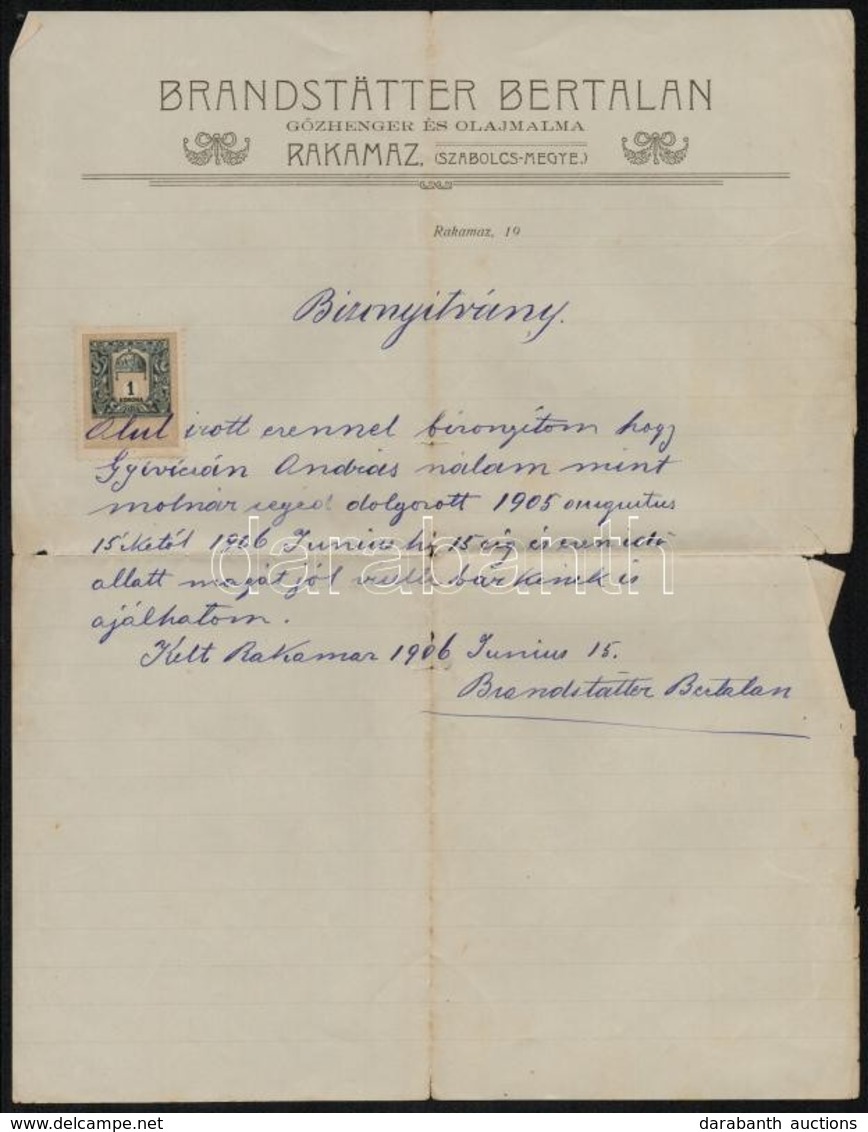 BRANDSTÄTTER BERTALAN
GŐZHENGER ÉS OLAJMALMA
RAKAMAZ, (SZABOLCS-MEGYE.)
Rakamaz, 19
Bizonyitvány.
1
KORONA
Alul irott ezennel bizonyítom hogy
András nálam mint
molnár segéd dolgozott 1905 augustus
15 1906 Junius hó 15 ig és ezen idő
allatt magát jól viselte bárkinek is
ajálhatom.
Kelt Rakamaz 1906 Junius 15.
Brandstätter Bertalan
darabanth
delcampe.net
darabanth auctions